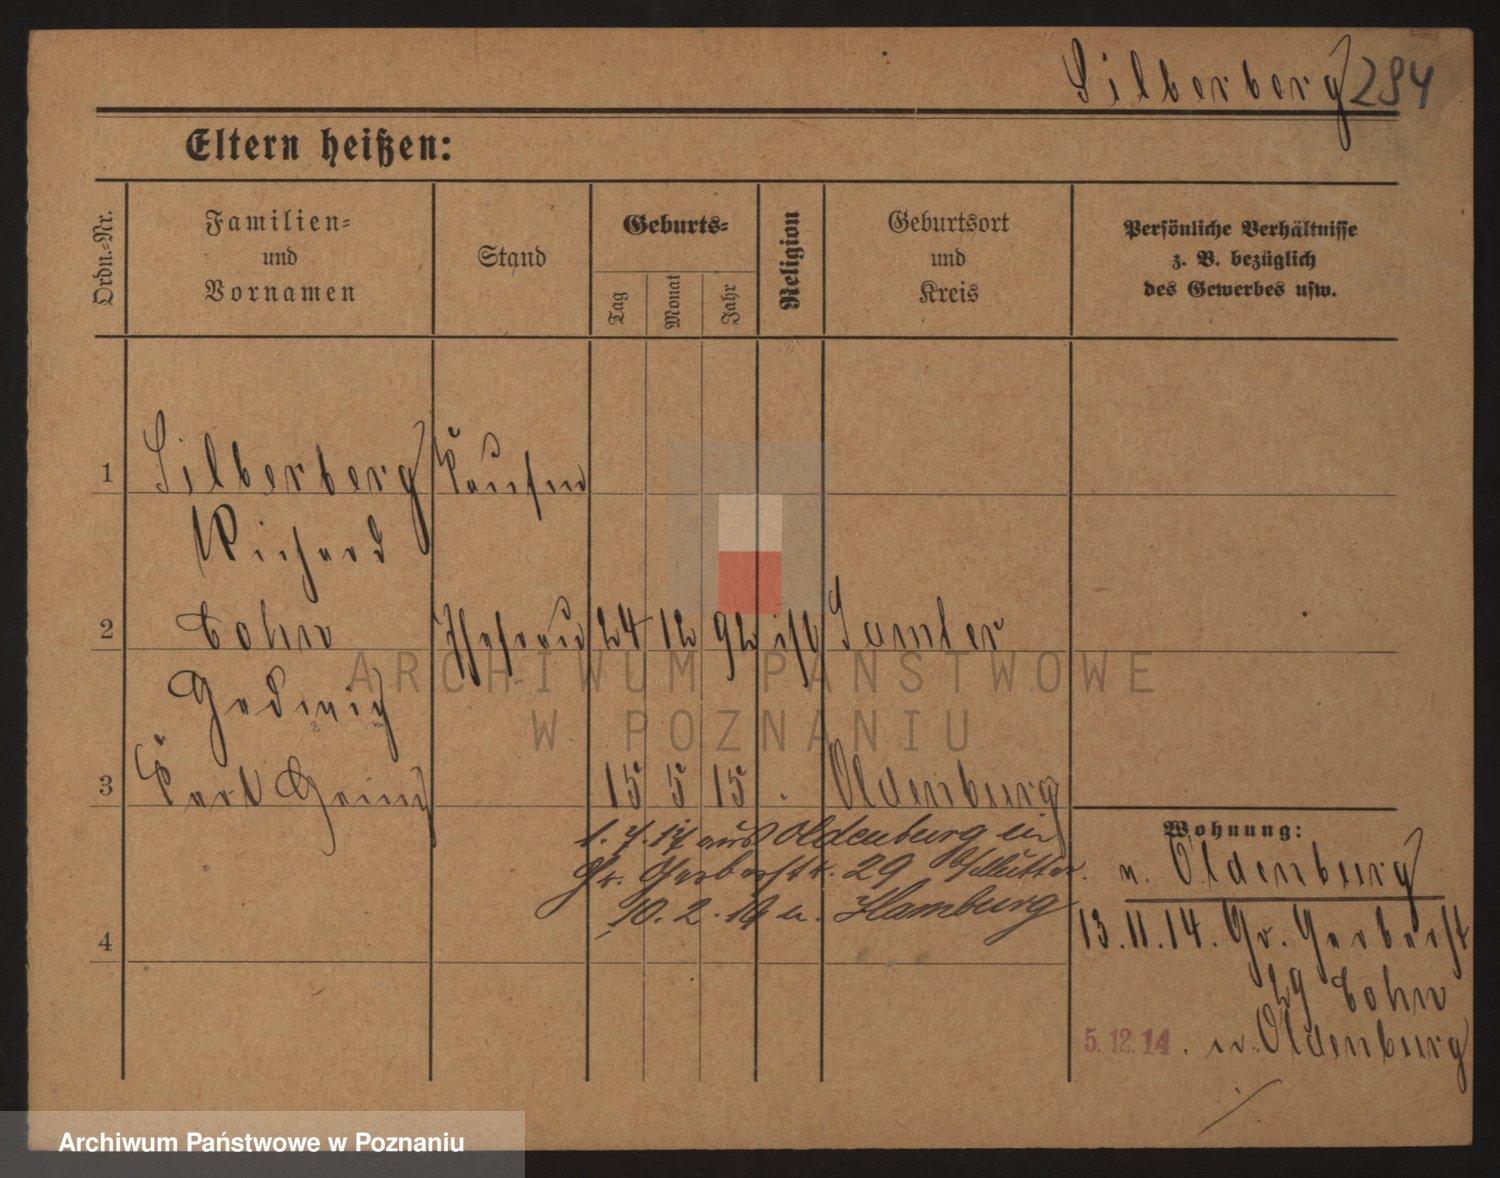 Silberberg 294
Eltern heißen:
Ordn.-Nr.
Familien-
und
Vornamen
Stand
Geburts-
Tag
Monat
Jahr
Religion
Geburtsort
und
Kreis
Persönliche Verhältnisse
z. B. bezüglich
des Gewerbes usw.
1 Silberberg Kaufm
Richard
2 Cohn Ehefrau 24 12 92 isr Samter
Hedwig
3 Kurt Heinz 15 5 15 Oldenburg
1. 7. 17 aus Oldenburg in
Gr. Gerberstr. 29 b/Mutter.
10. 2. 19 n. Hamburg
4
Wohnung:
n. Oldenburg
13.11.14. Gr. Gerberst
29 Cohn
5.12.14. n. Oldenburg
ARCHIWUM PAŃSTWOWE
W POZNANIU
Archiwum Państwowe w Poznaniu